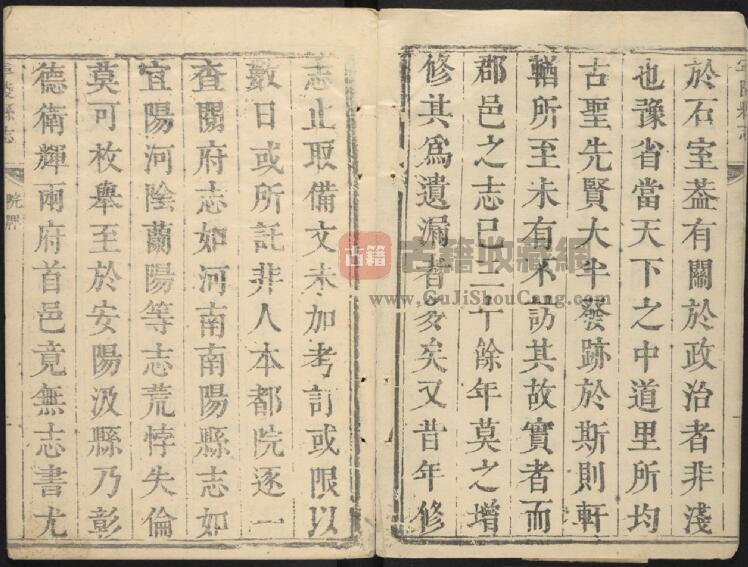 於石室葢有關於政治者非淺
也豫省當天下之中道里所均
古聖先賢大半發跡於斯則軒
輶所至未有不訪其故實者而
郡邑之志已二十餘年莫之增
修其爲遺漏者多矣又昔年修
志止取備文未加考訂或限以
數日或所託非人本都院逐一
查閱府志如河南南陽縣志如
宜陽河陰蘭陽等志荒悖失倫
莫可枚舉至於安陽汲縣乃彰
德衛輝兩府首邑竟無志書尤
陵縣志
院牌
古籍
古籍收藏網
www.GuJiShouCang.com